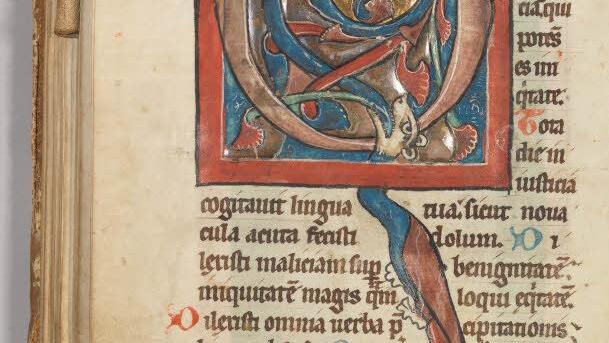 cia. qui
potēs
es ini
q̄tate.
Tota
die in
iusticia
cogitauit lingua tua. sicut noua
cula acuta fecisti dolum. Di
lexisti maliciam sup̄ benignitatē.
iniquitatē magis q̄m loqui eq̄tatē.
Dilexisti omnia uerba p̄cipitationis